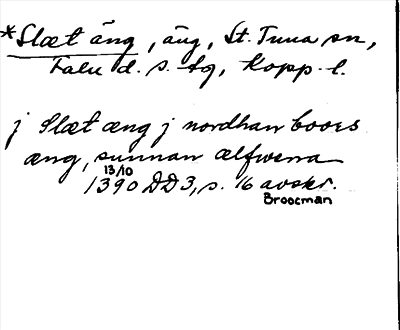 *Slæt äng, äng, St. Tuna sn,
Falu d. s. fg, Kopp. l.
j Slæt æng j nordhan boors
æng, sunnan ælfwenna
13/10
1390 DD 3, s. 16 avskr.
Broocman